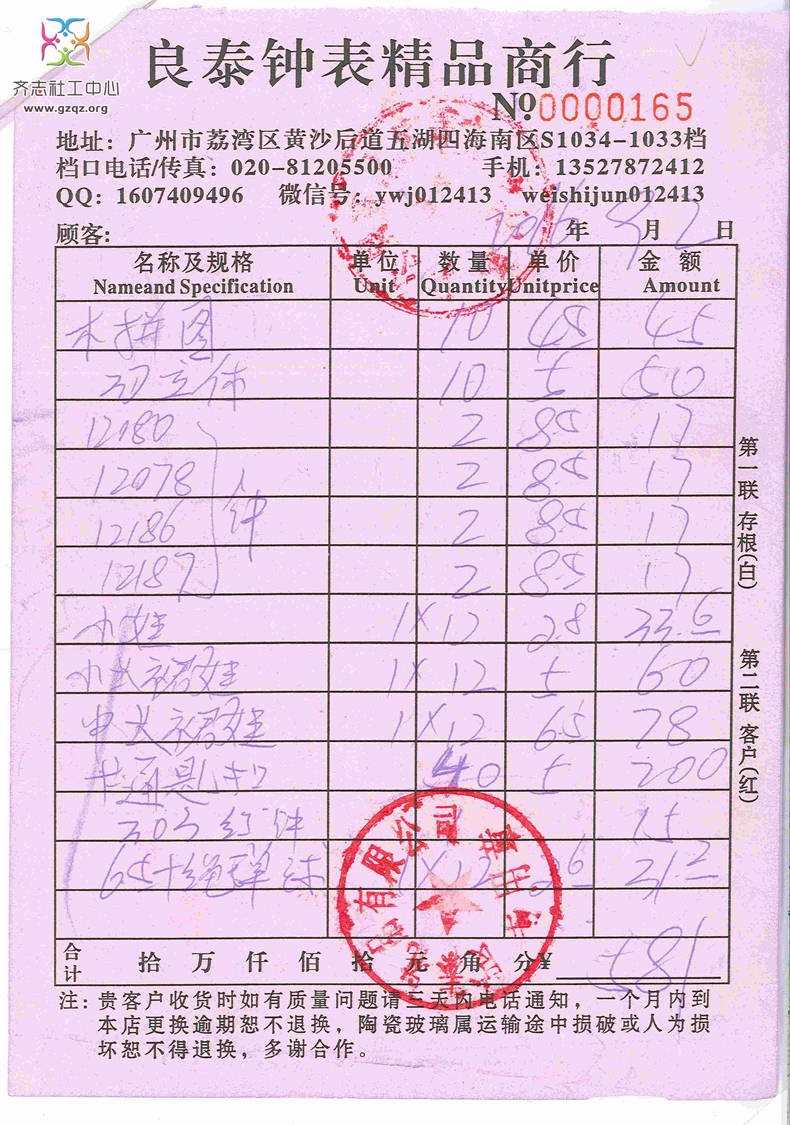 齐志社工中心
www.gzqz.org
良泰钟表精品商行
№0000165
地址：广州市荔湾区黄沙后道五湖四海南区S1034-1033档
档口电话/传真：020-81205500 手机：13527872412
QQ：1607409496 微信号：ywj012413 weishijun012413
顾客： 2016年9月2日
名称及规格 单位 数量 单价 金额
Nameand Specification Unit Quantity Unitprice Amount
木拼图 10 4.5 45
立体 10 5 50
12180 2 8.5 17
12078 2 8.5 17
钟
12186 2 8.5 17
12187 2 8.5 17
小娃 1×12 2.8 33.6
小长裙娃 1×12 5 60
中长裙娃 1×12 6.5 78
卡通匙扣 40 5 200
钟 15
球 1×12 2.6 31.2
合计 拾 万 仟 佰 拾 元 角 分¥ 581
注：贵客户收货时如有质量问题请三天内电话通知，一个月内到
本店更换逾期恕不退换，陶瓷玻璃属运输途中损破或人为损
坏恕不得退换，多谢合作。
第一联 存根(白)
第二联 客户(红)
有限公司